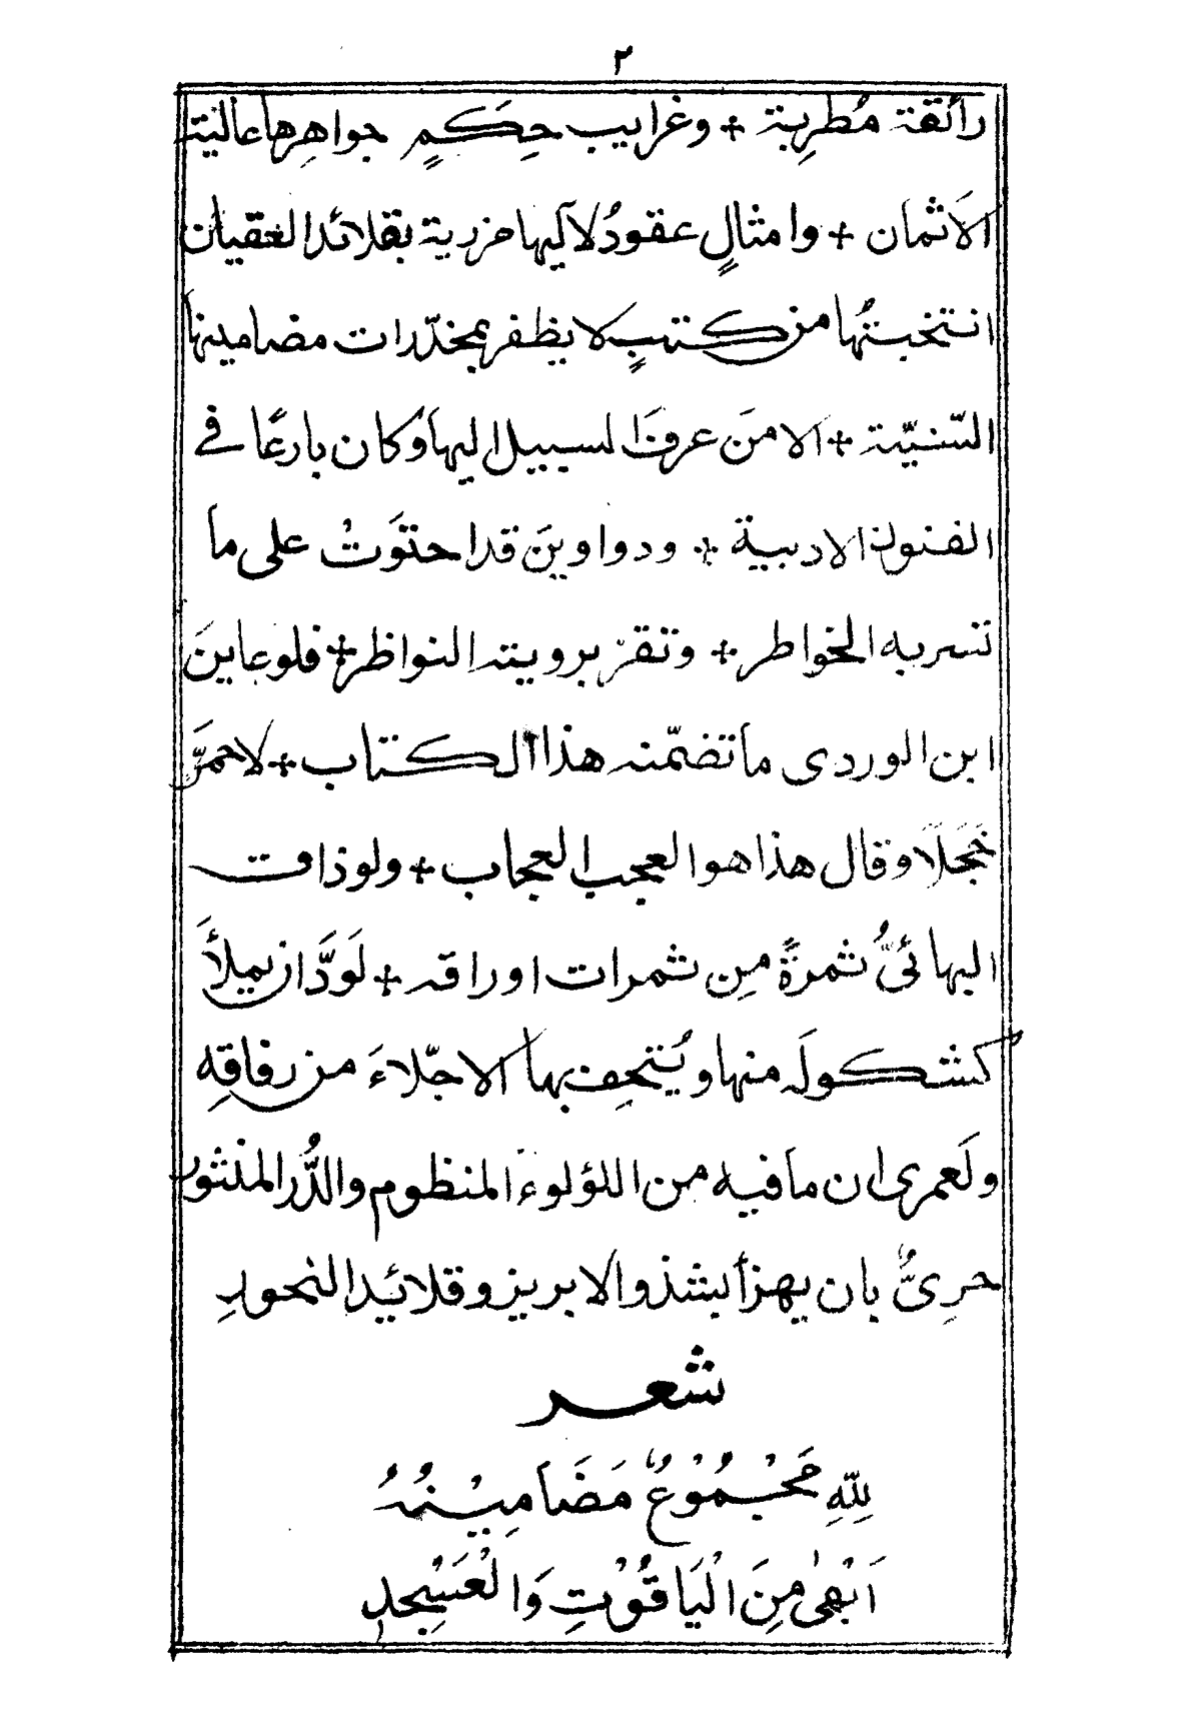 ٢
رائقة مُطرِبة + وغرايب حِكَمٍ جواهِرها غالية
الاَثمان + وامثالٍ عقودُ لآليها مزرية بقلائد العقيان
انتخبتُها من كتبٍ لا يظفر بمخدّرات مضامينها
السّنيّة + الا منَ عرفَ السبيل اليها وكان بارعًا في
الفنون الادبية + ودواوينَ قد احتوَتْ على ما
تسر به الخواطر + وتقرّ برويته النواظر + فلو عاينَ
ابن الوردى ما تضمّنه هذا الكتاب + لاحمرَّ
خَجَلًا وقال هذا هو العجب العجاب + ولو ذاقت
البهائىُّ ثمرةً مِن ثمرات اوراقه + لَوَدَّ ان يملأَ
كشكولَه منها ويُتحِف بها الاجّلاءَ من رفاقِه
ولَعمرى ان ما فيه من اللؤلوء المنظوم والدُّر المنثور
حرِىٌّ بان يهزأ بشذو الابريز وقلايد النحورِ
شعر
لِلّهِ مَجْمُوْعٌ مَضَامِيْنُهُ
اَبْهىٰ مِنَ الْيَاقُوْتِ وَالْعَسْجِدِ